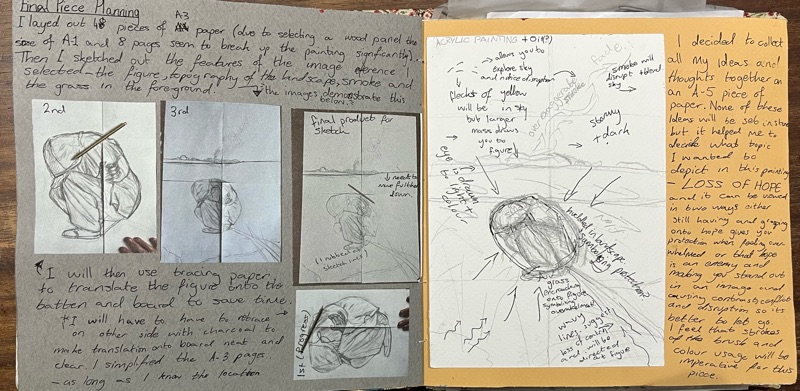 Final Piece Planning
I layed out 4 pieces of A-3 paper (due to selecting a wood panel the
size of A-1 and 8 pages seem to break up the painting significantly).
Then I sketched out the features of the image reference I
selected - the figure, topography of the landscape, smoke and
the grass in the foreground. the images demonstrate this
below.
2nd
3rd
final product for
sketch
needs to
move further
down.
(I rubbed out
sketch lines)
I will then use tracing paper,
to translate the figure onto the
batten and board to save time.
I will have to have to retrace
on other side with charcoal to
make translation onto board neat and
clear. I simplified the A-3 pages
- as long as I know the location
1st (Progress)
ACRYLIC PAINTING + Oil(?)
allows you to
explore sky
and notice disruption
flecks of yellow
will be in sky
but larger
mass draws
you to
figure
fade
smoke will
disrupt + blend
sky
over exaggerated
smoke
stormy
+ dark
eye is drawn
to light
color
huddled in landscape
protection?
grass
encroaching
onto figure
symbolising
overwhelment
wavy
lines suggest
loss of
and will be
directed
at figure
I decided to collect
all my ideas and
thoughts together on
an A-5 piece of
paper. None of these
Ideas will be set in stone
but it helped me to
decide what topic
I wanted to
depict in this painting
- LOSS OF HOPE
and it can be viewed
in two ways either
still having and grasping
onto hope gives you
protection when feeling over
whelmed or that hope
is an enemy and
making you stand out
in an image and
causing contrast, conflict
and disruption so its
better to let go.
I feel that strokes
of the brush and
colour usage will be
imperative for this
piece.